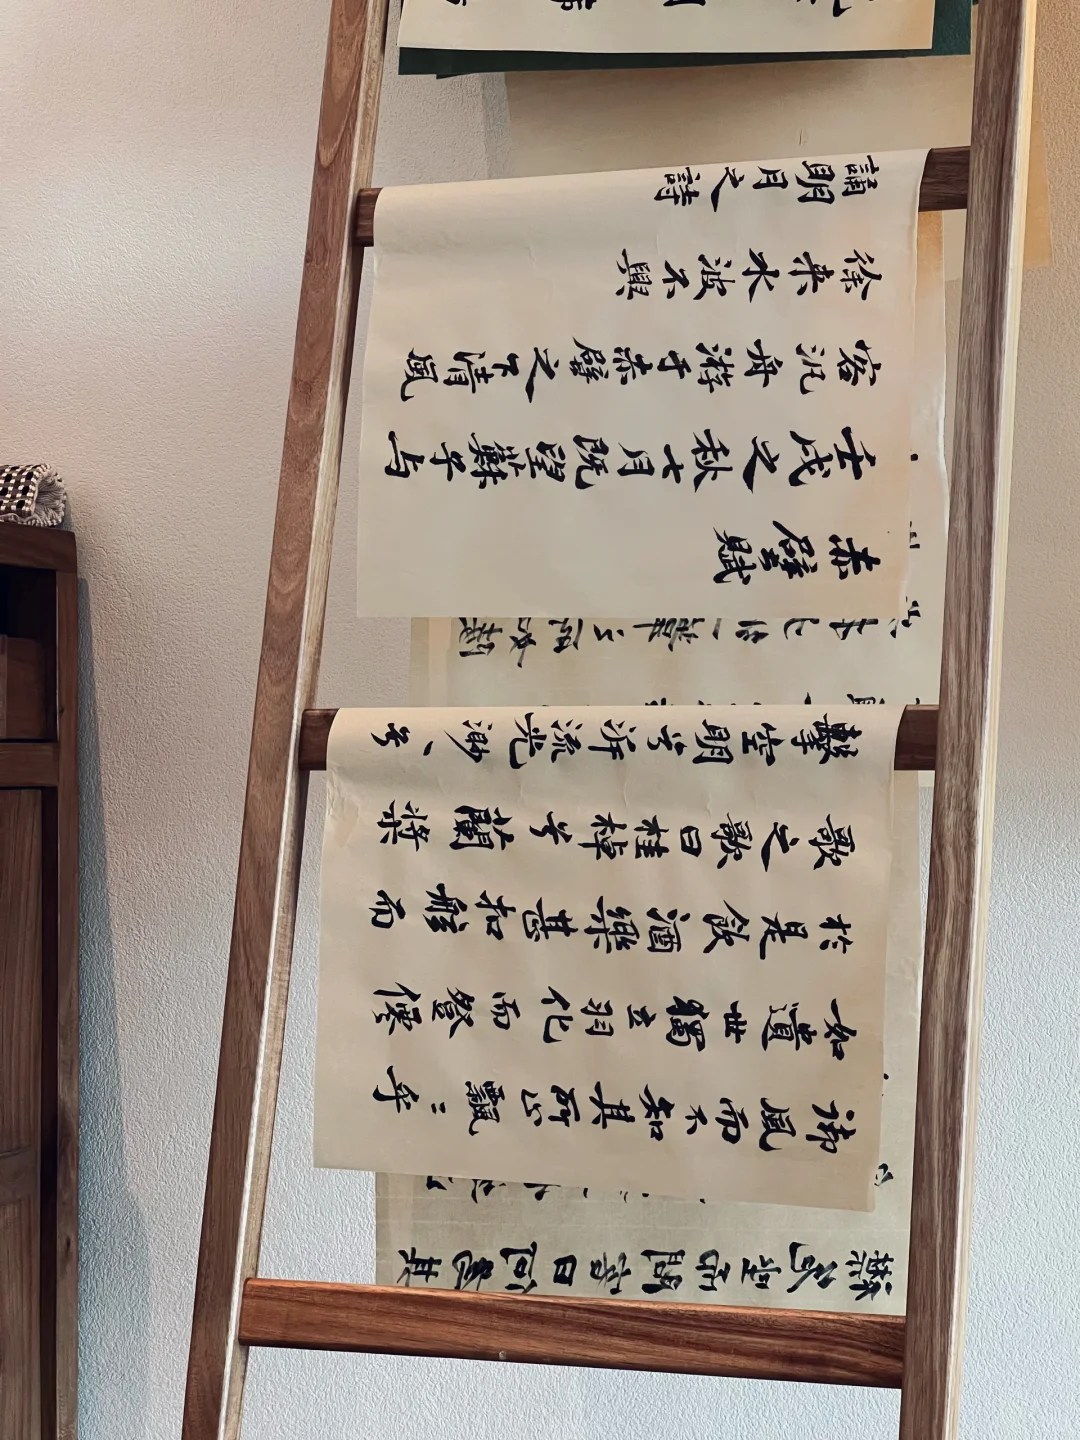 赤壁賦
壬戌之秋七月既望蘇子与
客汎舟游于赤壁之下清風
徐来水波不興
誦明月之詩
御風而不知其所止飄〻乎
如遺世獨立羽化而登僊
於是飲酒樂甚扣舷而
歌之歌曰桂棹兮蘭槳
擊空明兮泝流光渺〻兮
坐而問客曰何為其